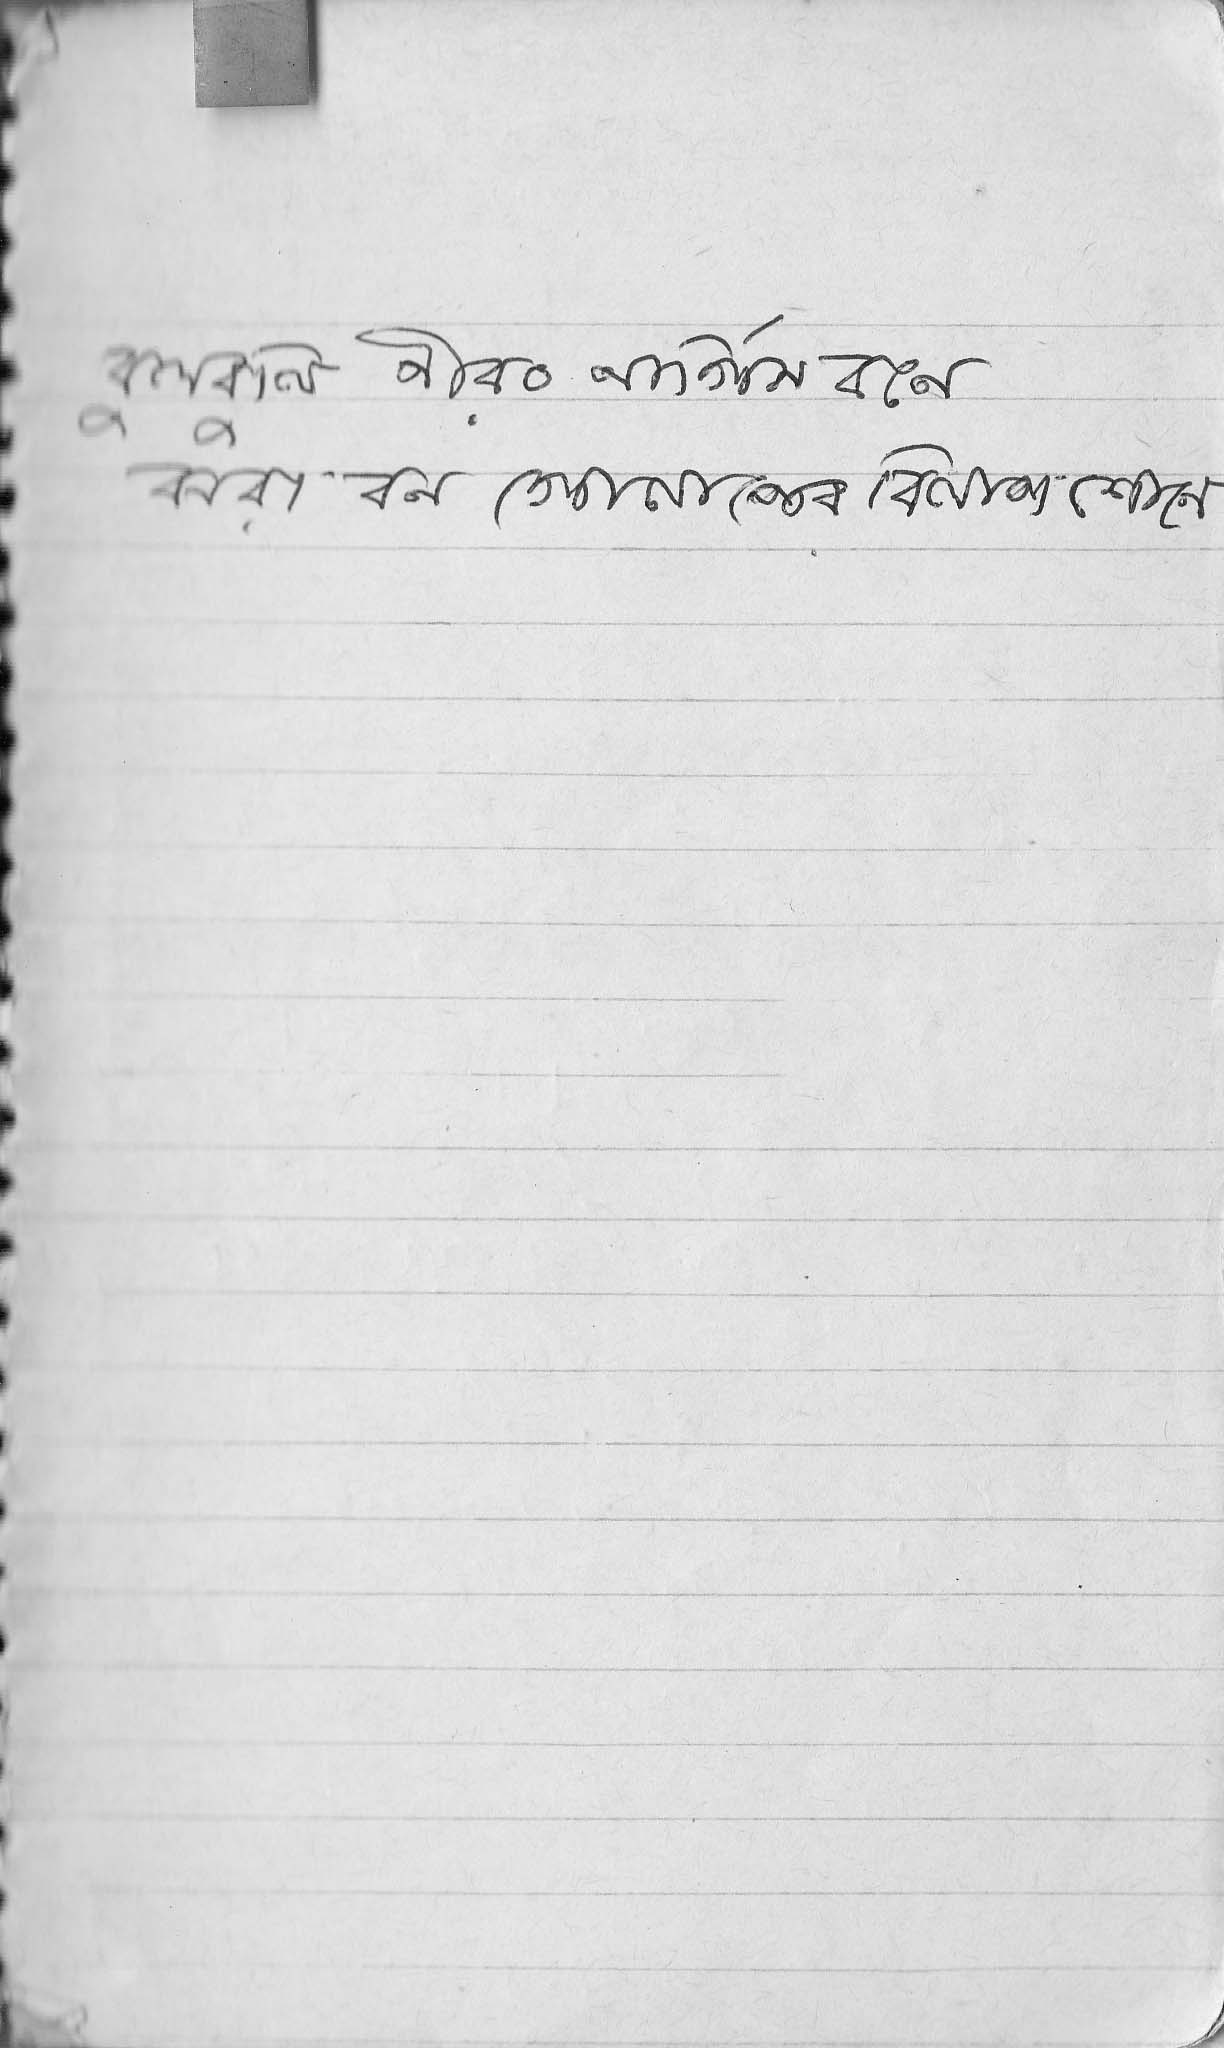 বুলবুলি নীরব নার্গিস বনে
ঝরা বন গোলাপের বিলাপ শোনে